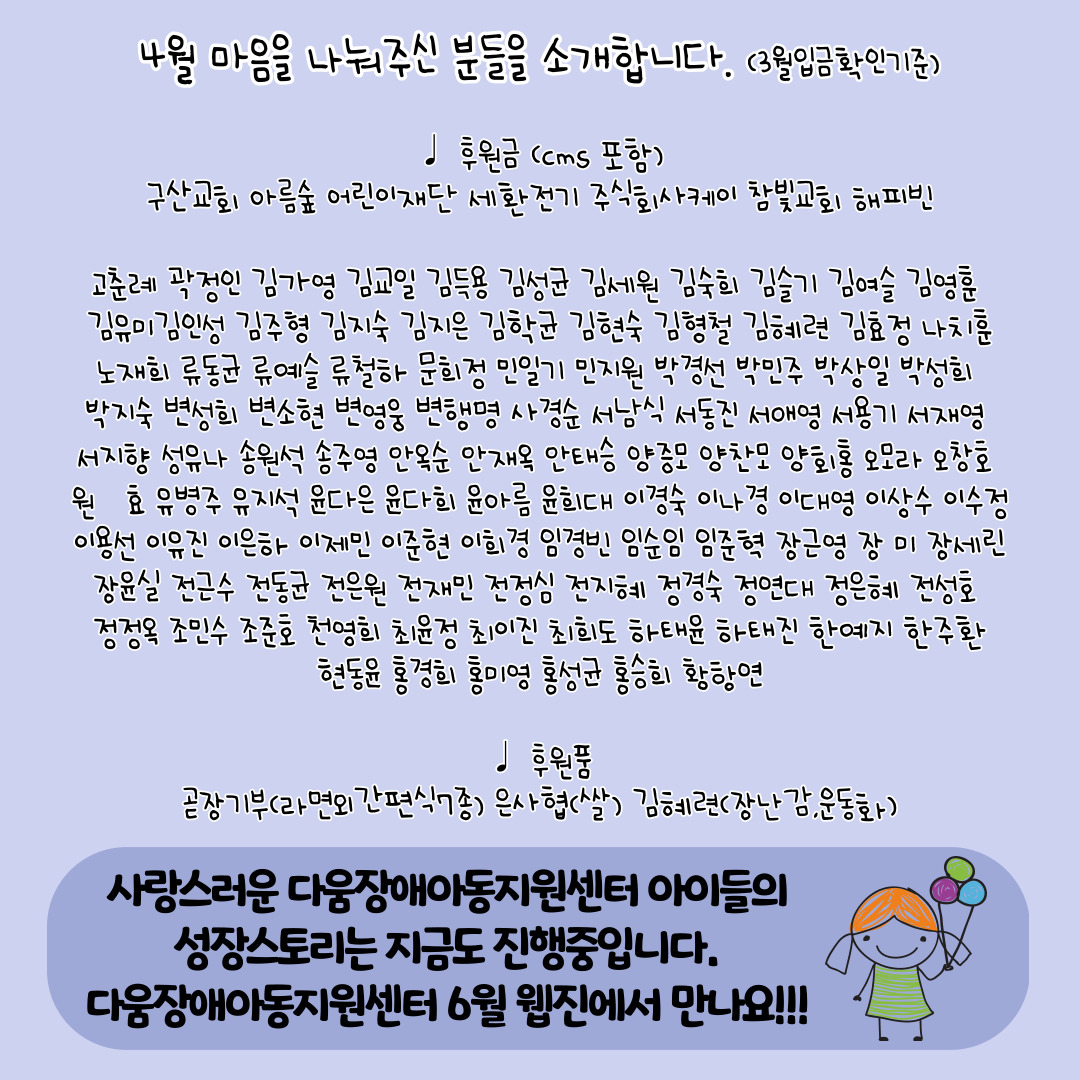 4월 마음을 나눠주신 분들을 소개합니다. (3월입금확인기준)
♩ 후원금 (cms 포함)
구산교회 아름숲 어린이재단 세환전기 주식회사케이 참빛교회 해피빈
고춘례 곽정인 김가영 김교일 김득용 김성균 김세원 김숙희 김슬기 김여슬 김영훈
김유미김인성 김주형 김지숙 김지은 김학균 김현숙 김형철 김혜련 김효정 나치훈
노재희 류동균 류예슬 류철하 문희정 민일기 민지원 박경선 박민주 박상일 박성희
박지숙 변성희 변소현 변영웅 변행명 사경순 서남식 서동진 서애영 서용기 서재영
서지향 성유나 송원석 송주영 안옥순 안재옥 안태승 양증모 양찬모 양회홍 오모라 오창호
원 효 유병주 유지석 윤다은 윤다희 윤아름 윤희대 이경숙 이나경 이대영 이상수 이수정
이용선 이유진 이은하 이제민 이준현 이희경 임경빈 임순임 임준혁 장근영 장 미 장세린
장윤실 전근수 전동균 전은원 전재민 전정심 전지혜 정경숙 정연대 정은혜 전성호
정정옥 조민수 조준호 천영희 최윤정 최이진 최희도 하태윤 하태진 한예지 한주환
현동윤 홍경희 홍미영 홍성균 홍승희 황항연
♩ 후원품
곧장기부(라면외간편식7종) 은사협(쌀) 김혜련(장난감,운동화)
사랑스러운 다움장애아동지원센터 아이들의
성장스토리는 지금도 진행중입니다.
다움장애아동지원센터 6월 웹진에서 만나요!!!